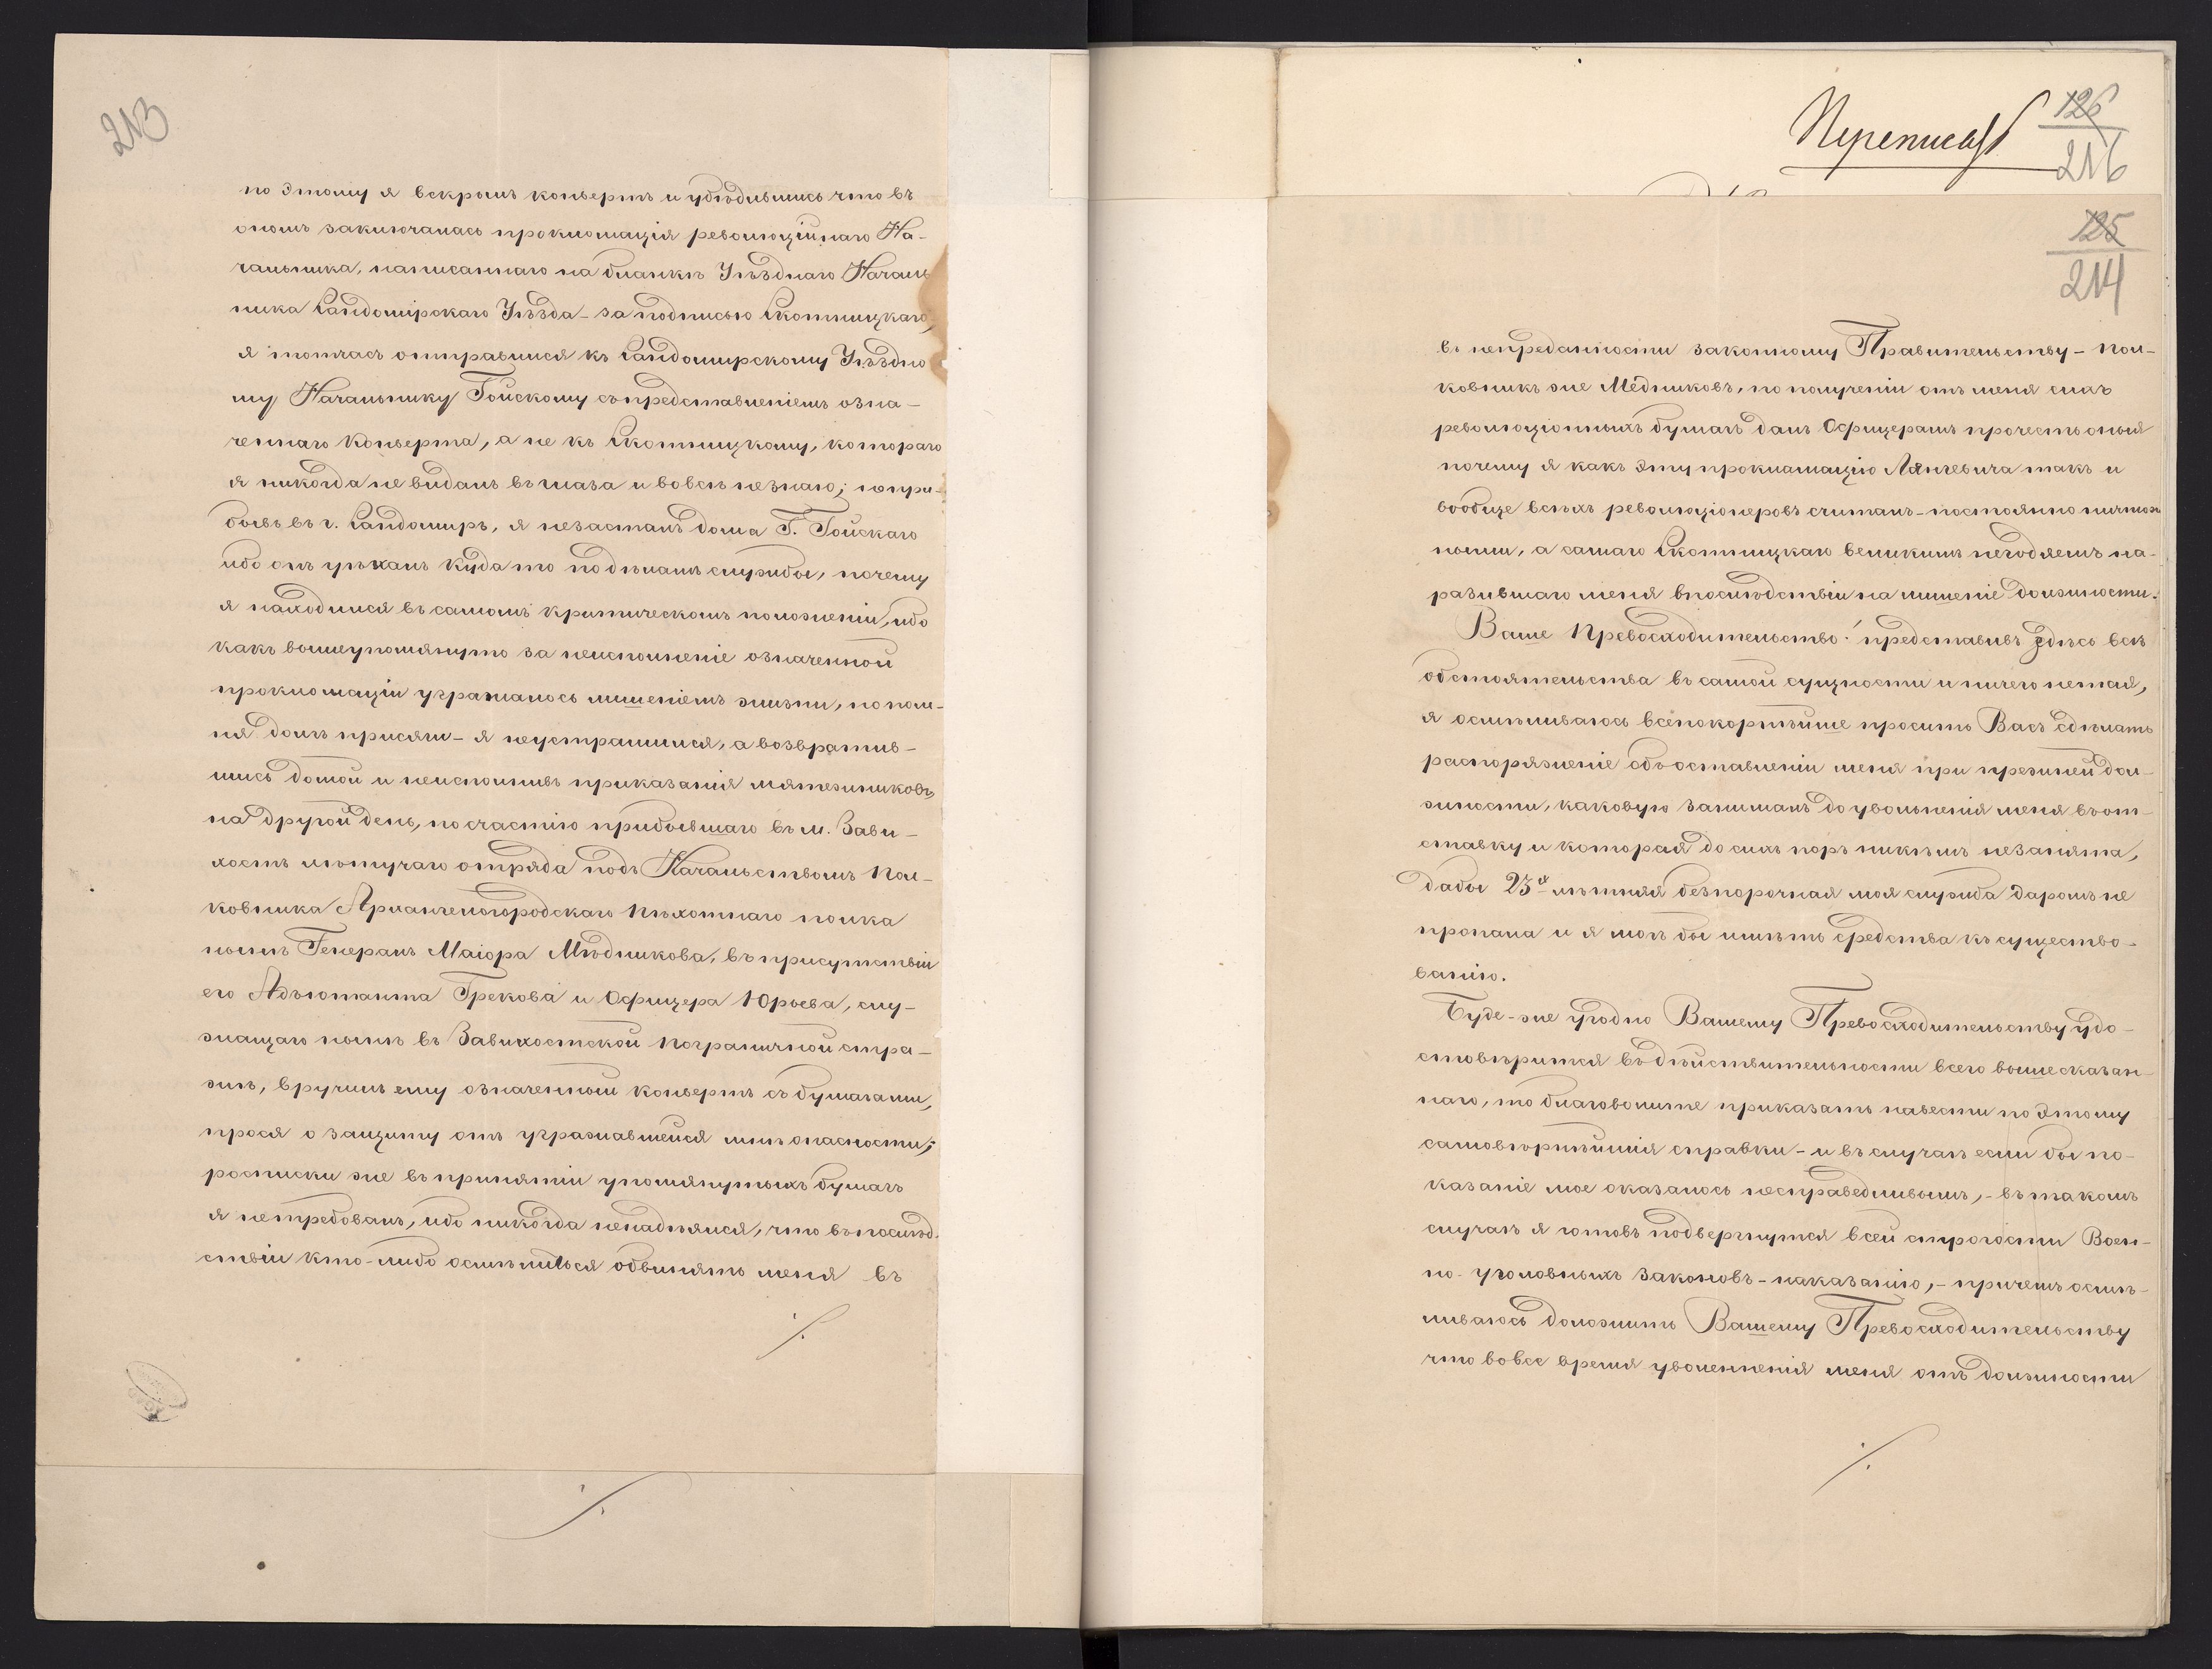 213
по этому я вскрылъ конвертъ и убѣдившись что въ
ономъ заключалась прокломація революційнаго На-
чальника, написаннаго на бланкѣ Уѣзднаго Началь
ника Сандомірскаго Уѣзда – за подписью Скотницкаго,
я тотчасъ отправился къ Сандомирскому Уѣздно
му Начальнику Гойскому съ представленіемъ озна-
ченнаго Конверта, а не къ Скотницкому, котораго
я никогда не видалъ въ глаза и вовсе незнаю; но при-
бывъ въ г. Сандомиръ, я незасталъ дома Г. Гойскаго
ибо онъ уѣхалъ куда то по дѣламъ службы, почему
я находился въ самомъ критическомъ положеніи, ибо
какъ вышеупомянуто за неисполненіе означенной
прокломаціи угражалось лишеніемъ жизни, но пом-
ня долгъ присяги – я неустрашился, а возвратив-
шись домой и неисполнивъ приказанія мятежниковъ,
на другой день, по счастію прибывшаго въ м. Зави-
хостъ летучаго отряда подъ Начальствомъ Пол-
ковника Архангелогородскаго Пѣхотнаго полка
нынѣ Генералъ Маіора Мѣдникова, въ присутствіи
его Адъютанта Грекова и Офицера Юрьева, слу-
жащаго нынѣ въ Завихостской Пограничной стра-
жѣ, вручилъ ему означенный конвертъ съ бумагами,
прося о защиту отъ угражавшейся мнѣ опасности;
росписки же въ принятіи упомянутыхъ бумагъ
я нетребовалъ, ибо никогда ненадѣялся, что въ послѣд-
ствіи кто-либо осмѣлится обвинять меня въ
/.
/.
Переписать
126
216
125
214
въ непреданности законному Правительству – Пол-
ковникъ же Мѣдниковъ, по полученіи отъ меня сихъ
революціонныхъ бумагъ далъ Офицерамъ прочесть оныя
почему я какъ эту прокламацію Лянгевича такъ и
вообще всѣхъ революціонеровъ считалъ – постоянно ничтож
ными, а самаго Скотницкаго великимъ негодяемъ на-
разившаго меня впослѣдствіи на лишеніе должности.
Ваше Превосходительство! представивъ здѣсь всѣ
обстоятельства въ самой сущности и ничего нетая,
я осмѣливаюсь всепокорнѣйше просить Васъ сдѣлать
распоряженіе объ оставленіи меня при прежней дол-
жности, каковую занималъ до увольненія меня въ от-
ставку и которая до сихъ поръ никѣмъ незанята,
дабы 23х лѣтняя безпорочная моя служба даромъ не
пропала и я могъ бы имѣть средства къ существо-
ванію.
Буде-же угодно Вашему Превосходительству удо-
стовѣрится въ дѣйствительности всего выше сказан-
наго, то благоволите приказать навести по этому
самовѣрнѣйшія справки – и въ случаѣ если бы по-
казаніе мое оказалось несправедливымъ, – въ такомъ
случаѣ я готовъ подвергнутся всей строгости Воен-
но-уголовныхъ Законовъ – наказанію, – причемъ осмѣ-
ливаюсь доложить Вашему Превосходительству
что во все время уволненія меня отъ должности
/.